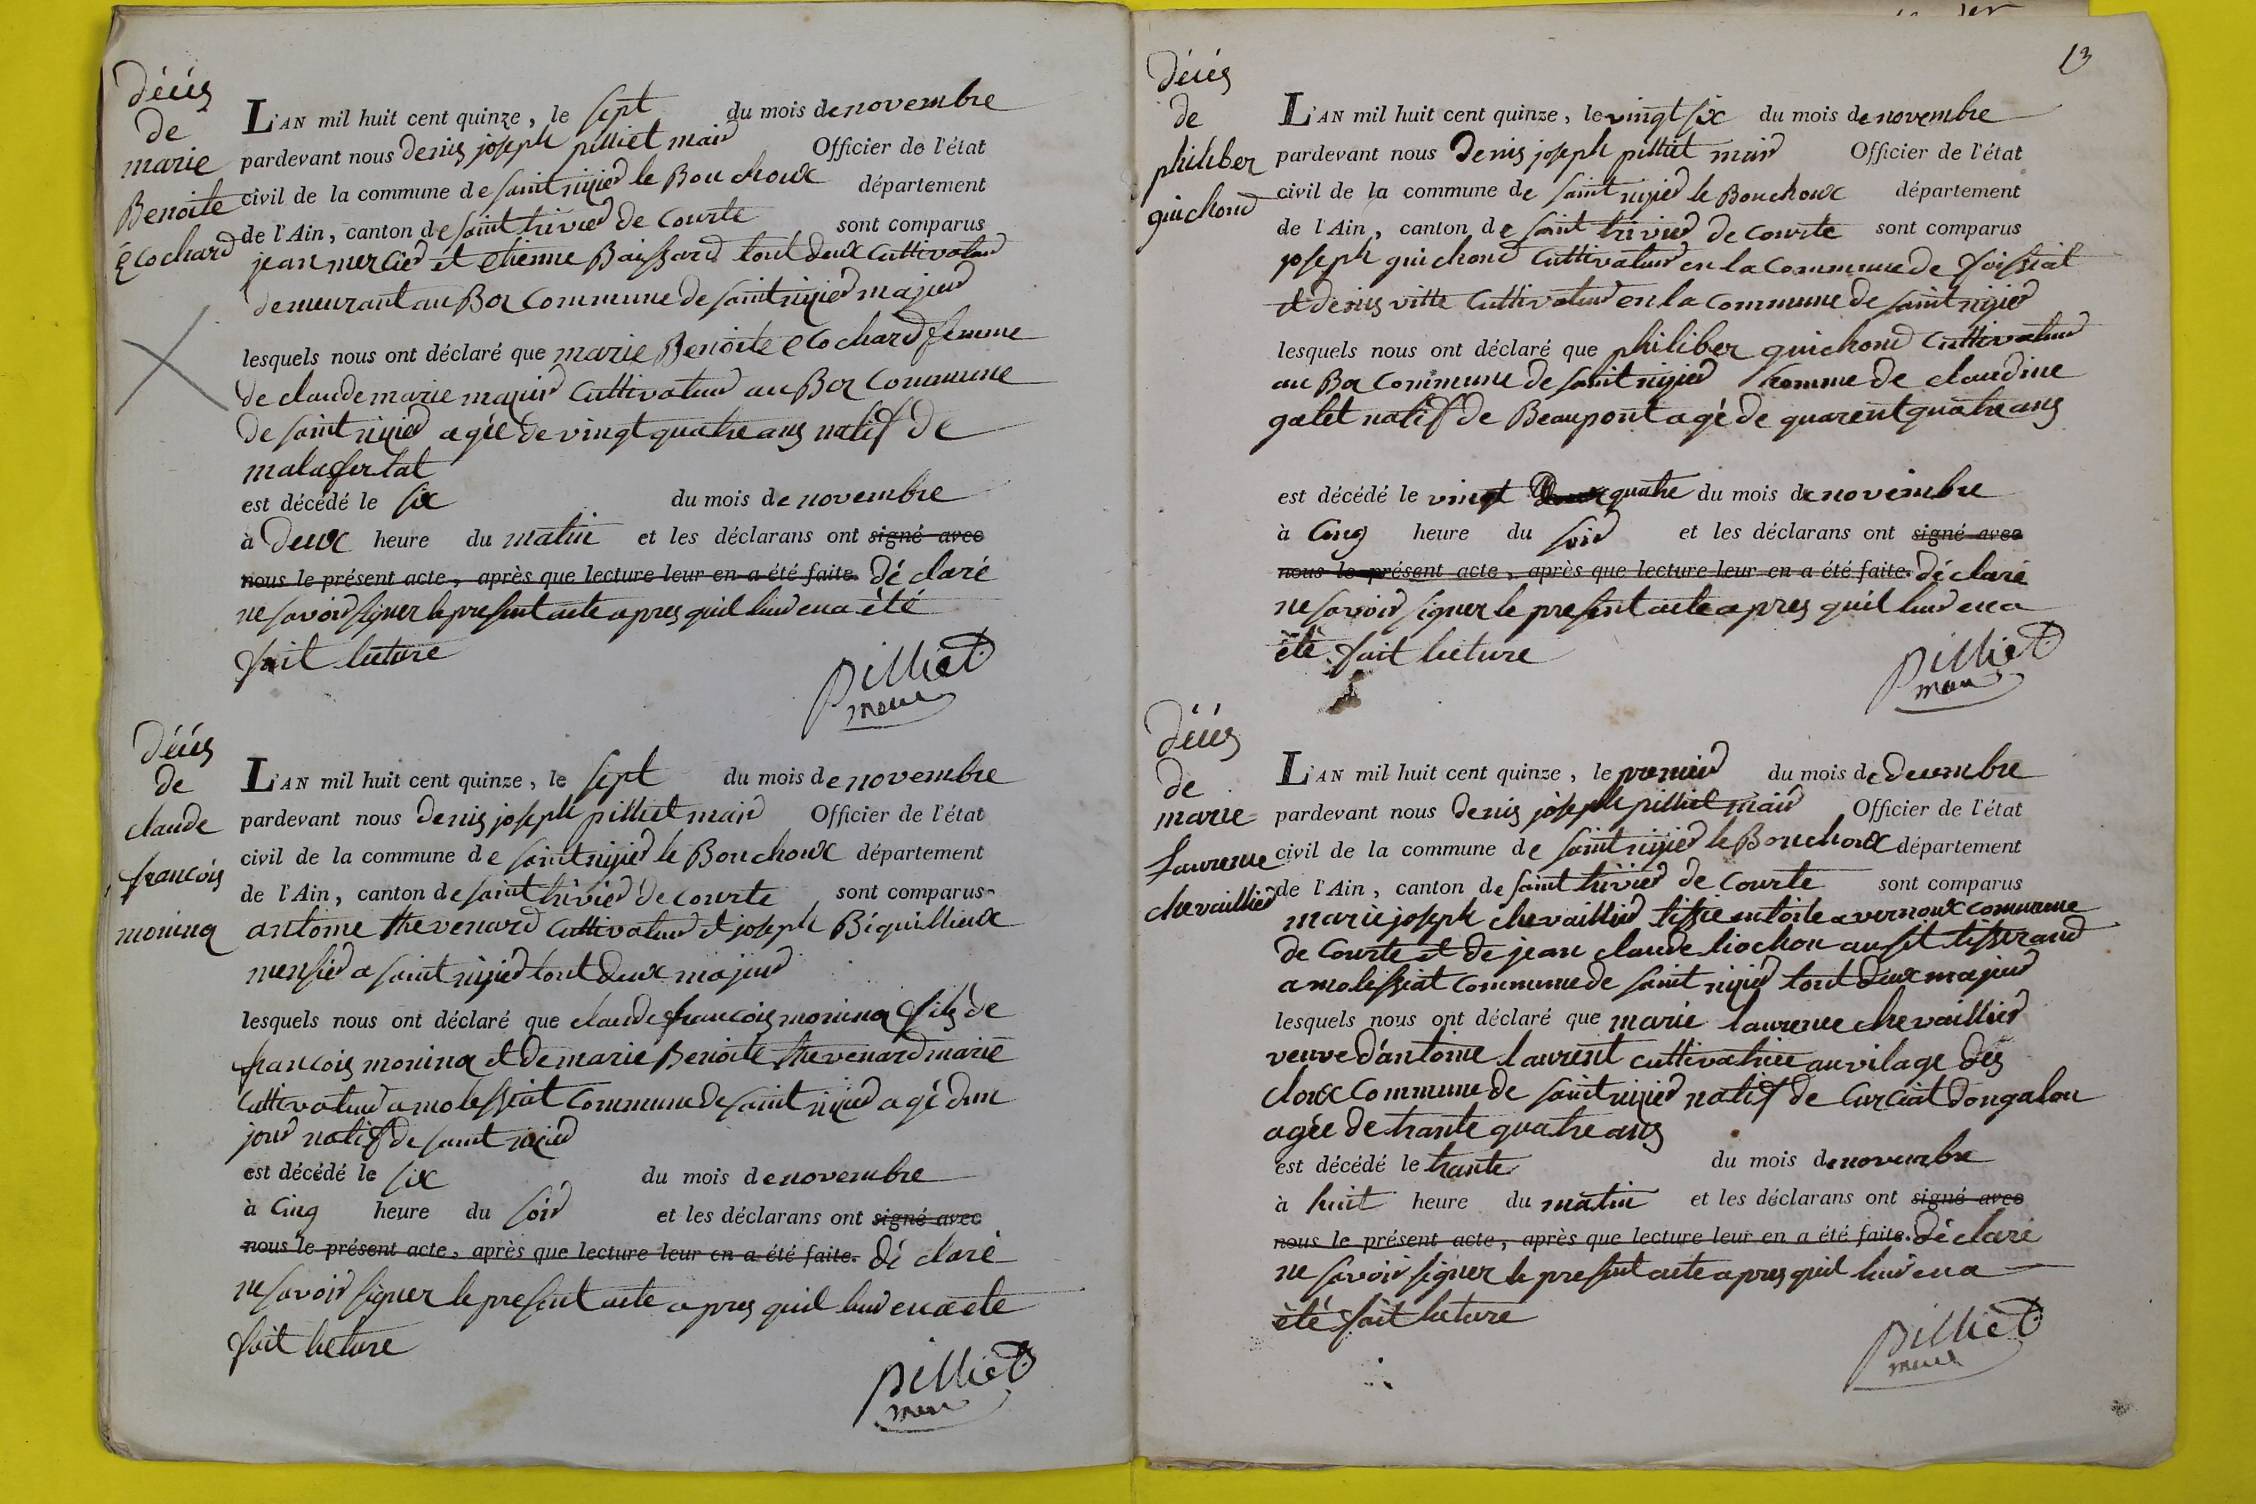 décès
de
marie
Benoite
Ecochard
L'AN mil huit cent quinze, le sept du mois de novembre
pardevant nous denis joseph pilliet mair Officier de l'état
civil de la commune de saint nizier le Bouchoux département
de l'Ain, canton de saint trivier de courte sont comparus
jean mercier et etienne Baissard tout deux cuttivateur
demeurant au Boz commune de saint nizier majeur
lesquels nous ont déclaré que marie Benoite ecochard femme
de claude marie cuttivateur au Boz commune
de saint nizier agée de vingt quatre ans natif de
malafertat
est décédé le six du mois de novembre
à deux heure du matin et les déclarans ont signé avec
nous le présent acte, après que lecture leur en a été faite. déclaré
ne savoir signer le present acte apres quil leur en a été
fait lecture
pilliet
maire
décès
de
claude
francois
L'AN mil huit cent quinze, le sept du mois de novembre
pardevant nous denis joseph pilliet mair Officier de l'état
civil de la commune de saint nizier le Bouchoux département
de l'Ain, canton de saint trivier de courte sont comparus
antoine thevenard cuttivateur et joseph Béquillieux
a saint nizier tout deux majeur
lesquels nous ont déclaré que claude francois fils de
francois et de marie Benoite thevenard marié
cuttivateur a molessiat commune de saint nizier agé dun
jour natif de saint nizier
est décédé le six du mois de novembre
à cinq heure du soir et les déclarans ont signé avec
nous le présent acte, après que lecture leur en a été faite. déclaré
ne savoir signer le present acte apres quil leur en a ete
fait lecture
pilliet
maire
13
décès
de
philiber
guichond
L'AN mil huit cent quinze, le vingt six du mois de novembre
pardevant nous Denis joseph pilliet mair Officier de l'état
civil de la commune de saint nizier le Bouchoux département
de l'Ain, canton de saint trivier de courte sont comparus
joseph guichond cuttivateur en la commune de foissiat
et denis vitte cuttivateur en la commune de saint nizier
lesquels nous ont déclaré que philiber guichond cuttivateur
au Boz commune de saint nizier homme de claudine
galet natif de Beaupont agé de quarent quatre ans
est décédé le vingt quatre du mois de novembre
à cinq heure du soir et les déclarans ont signé avec
nous le présent acte, après que lecture leur en a été faite. déclaré
ne savoir signer le present acte apres quil leur en a
été fait lecture
pilliet
maire
décès
de
marie
Laurence
chevaillier
L'AN mil huit cent quinze, le premier du mois de decembre
pardevant nous denis joseph pilliet mair Officier de l'état
civil de la commune de saint nizier le Bouchoux département
de l'Ain, canton de saint trivier de courte sont comparus
marie joseph chevaillier en toile a vernoux commune
de courte et de jean claude liochon ausit tisserand
a molessiat commune de saint nizier tout deux majeur
lesquels nous ont déclaré que marie laurence chevaillier
veuve d'antoine laurent cuttivatrice au vilage des
cloux commune de saint nizier natif de curciat dongalon
agée de trante quatre ans
est décédé le trante du mois de novembre
à huit heure du matin et les déclarans ont signé avec
nous le présent acte, après que lecture leur en a été faite. déclaré
ne savoir signer le present acte apres quil leur en a
été fait lecture
pilliet
maire